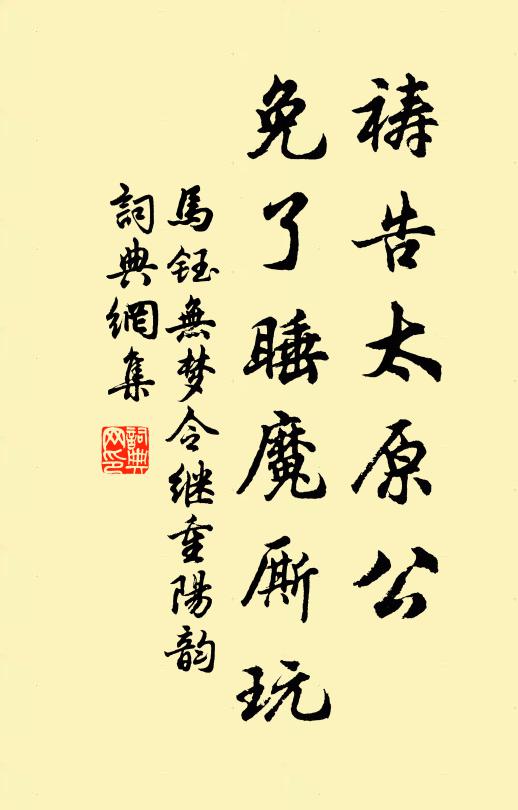 祷告太原公
免了睡魔厮玩
馬鈺無梦令继重陽韵
詞典網集
詞典网印